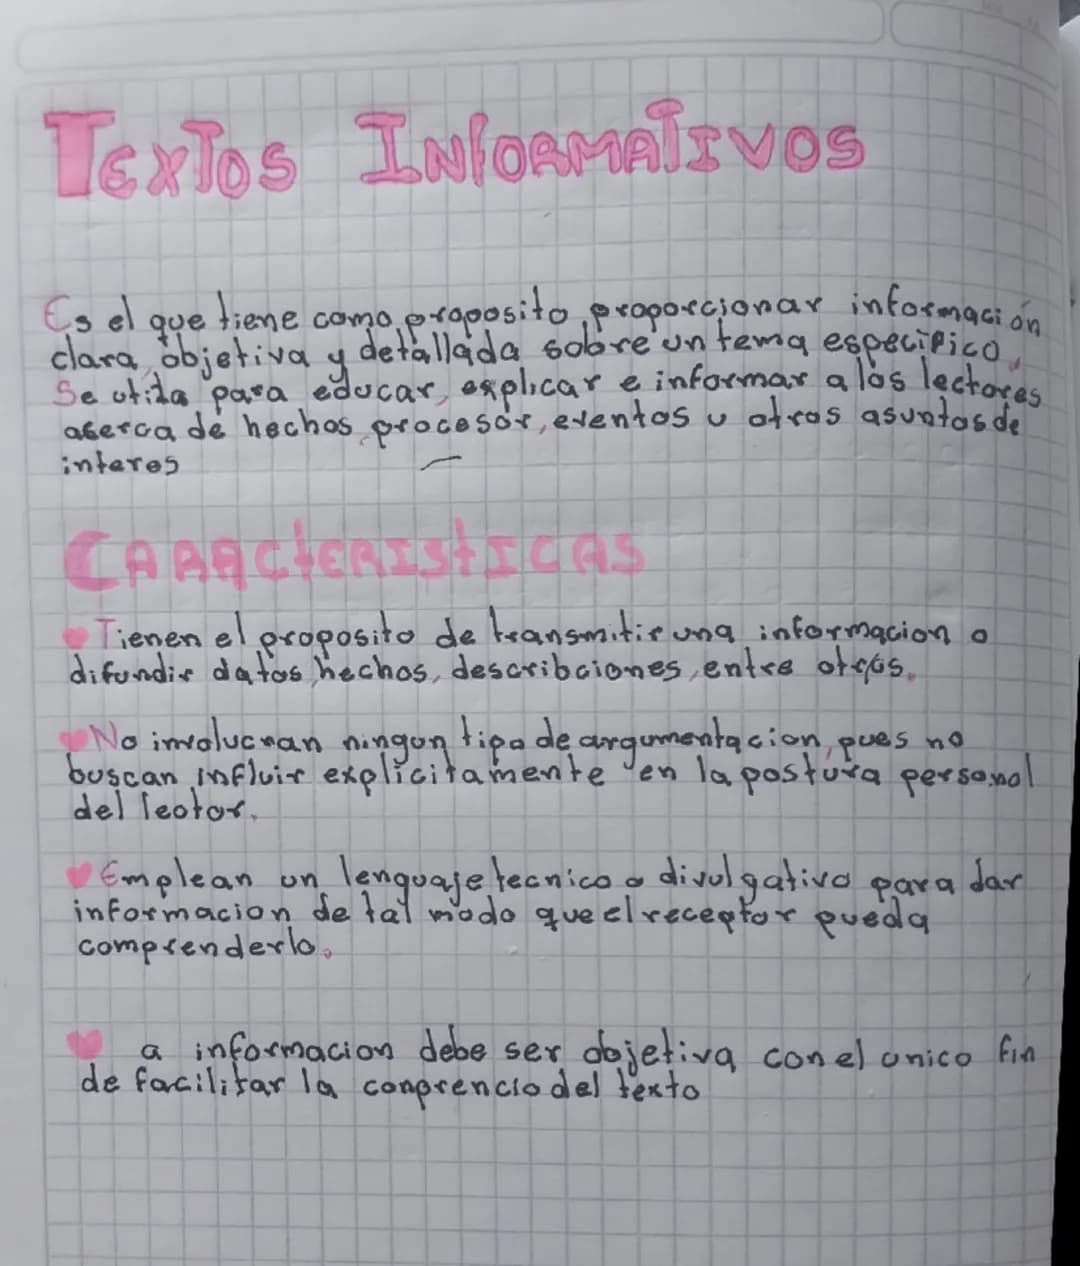 TEXTOS INFORMATIVOS
Es el que tiene como proposito proporcionar información
clara, objetiva y detallada sobre un tema especifico,
Se utiliza para educar, explicar e informar a los lectores
aserca de hechos, procesos, eventos u otros asuntos de
interes
CARACTERISTICAS
Tienen el proposito de transmitir una informacion o
difundir datos, hechos, describciones, entre otros.
No involucran ningun tipo de argumentacion, pues no
buscan influir explicitamente en la postura personal
del lector.
Emplean un lenguaje tecnico o divulgativo para dar
informacion de tal modo que el receptor pueda
comprenderlo.
a informacion debe ser objetiva con el unico fin
de facilitar la conprencio del texto